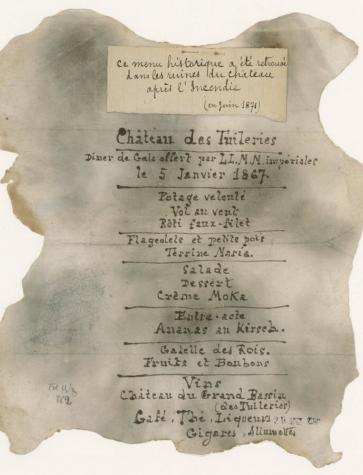 Ce menu historique a été retrouvé
dans les ruines du château
après l'Incendie
(en Juin 1871)
Château des Tuileries
Diner de Gala offert par LL.M.M. impériales
le 5 Janvier 1867.
Potage velouté
Vol au vent
Rôti faux-filet
Flageolets et petits pois
Terrine Maria.
Salade
Dessert
Crème Moka
Entre-acte
Ananas au Kirsch.
Galette des Rois.
Fruits et Bonbons
Vins
Château du Grand Bassin
(des Tuileries)
Café, Thé, Liqueurs
Cigares, Allumettes